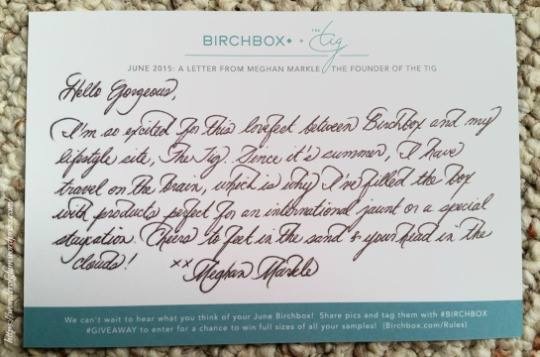 BIRCHBOX + the tig
JUNE 2015: A LETTER FROM MEGHAN MARKLE, THE FOUNDER OF THE TIG
Hello Gorgeous,
I'm so excited for this lovefest between Birchbox and my
lifestyle site, The Tig. Since it's summer, I have
travel on the brain, which is why I've filled the box
with products perfect for an international jaunt or a special
staycation. Cheers to feet in the sand & your head in the
clouds!
xx Meghan Markle
We can't wait to hear what you think of your June Birchbox! Share pics and tag them with #BIRCHBOX
#GIVEAWAY to enter for a chance to win full sizes of all your samples! (Birchbox.com/Rules)